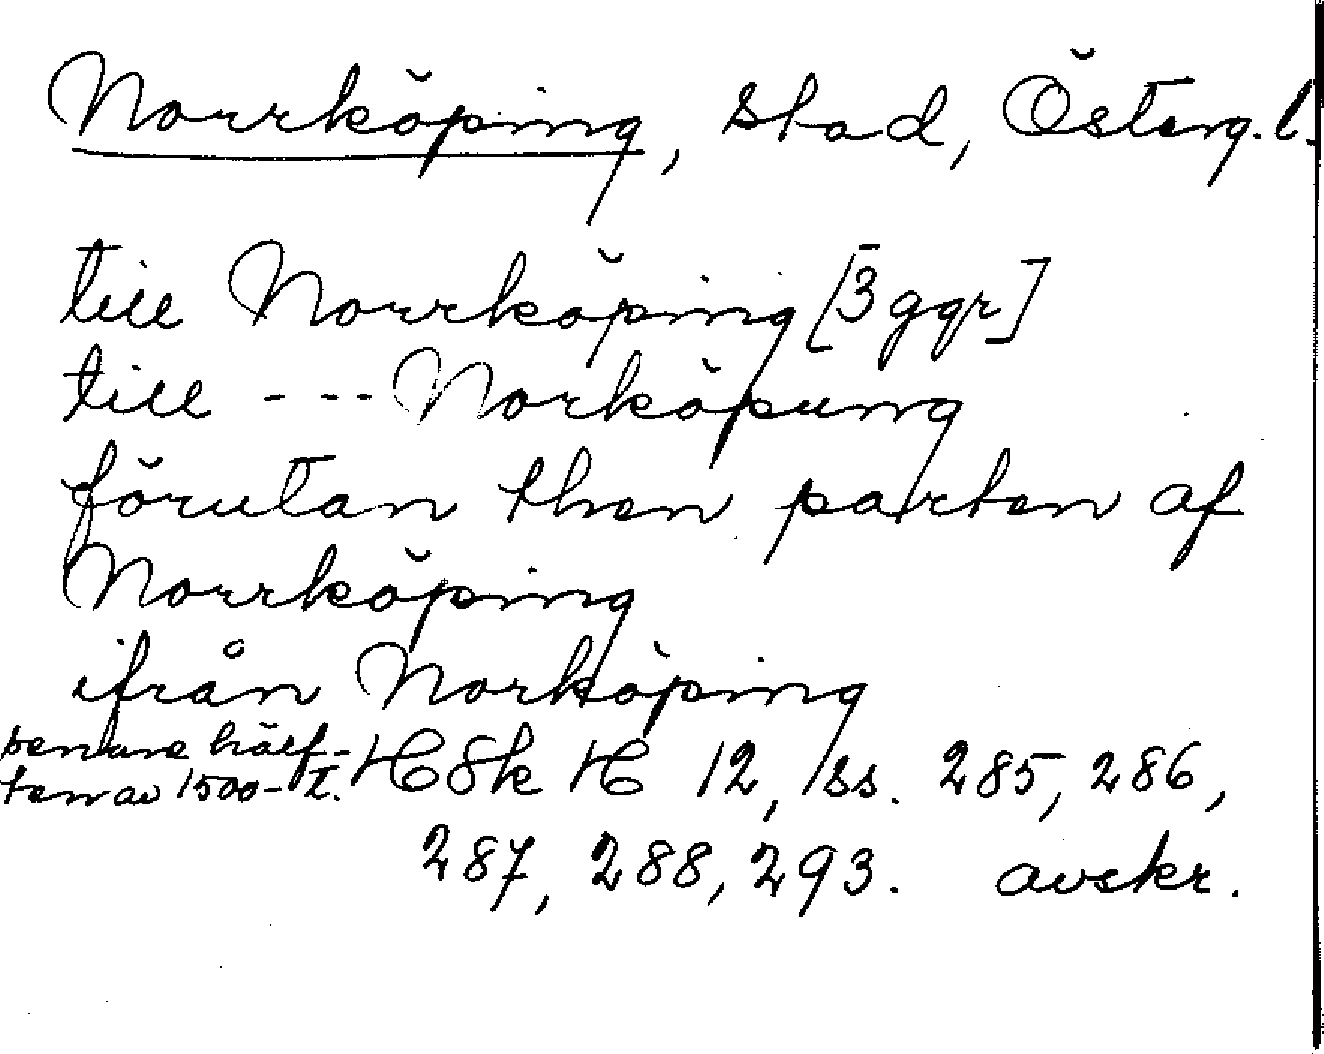 Norrköping, stad, Österg. l.
till Norrköping [3 ggr]
till --- Norköpung
förutan then parten af
Norrköping
ifrån Norköping
senare hälf-
ten av 1500-t. HSk H 12, ss. 285, 286,
287, 288, 293. avskr.